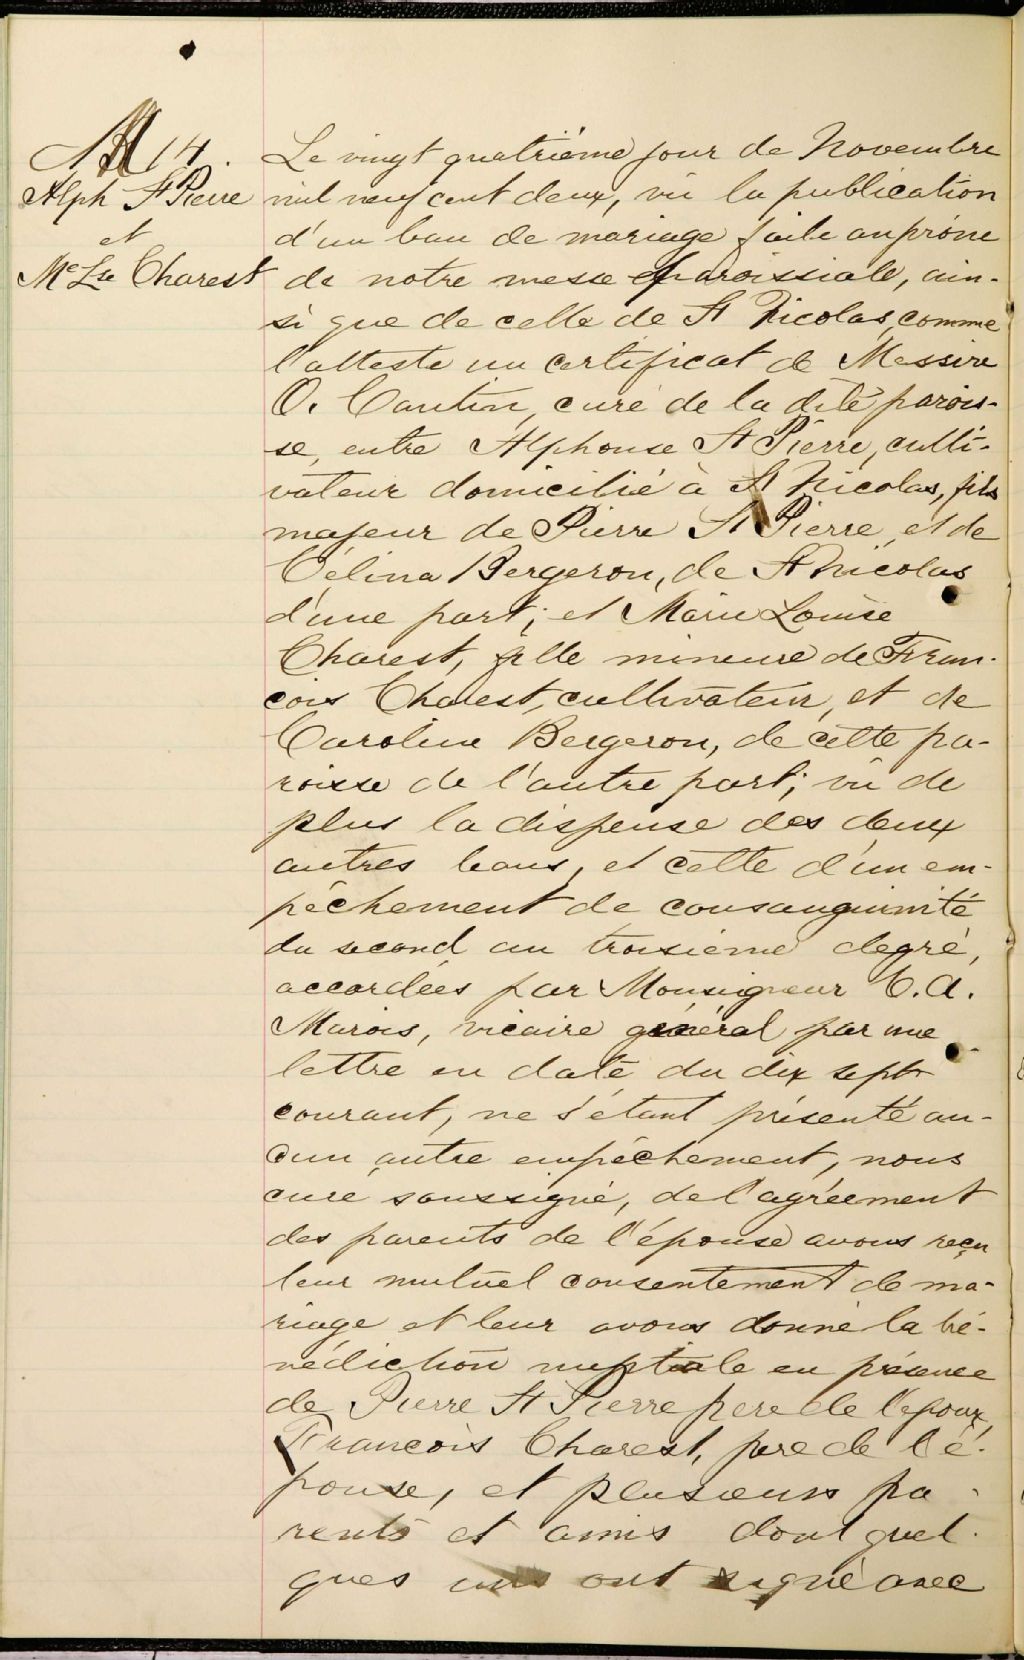 M 14.
Alph St Pierre
et
Me Lse Charest
Le vingt quatrième jour de Novembre
mil neuf cent deux, vu la publication
d'un ban de mariage faite au prône
de notre messe paroissiale, ain-
si que de celle de St Nicolas, comme
l'atteste un certificat de Messire
O. Cantin, curé de la dite parois-
se, entre Alphonse St Pierre, culti-
vateur domicilié à St Nicolas, fils
majeur de Pierre St Pierre, et de
Célina Bergeron, de St Nicolas
d'une part; et Marie Louise
Charest, fille mineure de Fran-
çois Charest, cultivateur, et de
Caroline Bergeron, de cette pa-
roisse de l'autre part; vû de
plus la dispense des deux
autres bans, et celle d'un em-
pêchement de consanguinité
du second au troisième degré,
accordées par Monsigneur C. A.
Marois, vicaire général par une
lettre en date du dix sept
courant, ne s'étant présenté au-
cun autre empêchement, nous
curé soussigné, de l'agréement
des parents de l'épouse avons reçu
leur mutuel consentement de ma-
riage et leur avons donné la bé-
nédiction nuptiale en présence
de Pierre St Pierre pere de l'epoux,
Francois Charest, pere de l'é-
pouse, et plusieurs pa-
rents et amis dont quel-
ques uns ont signé avec